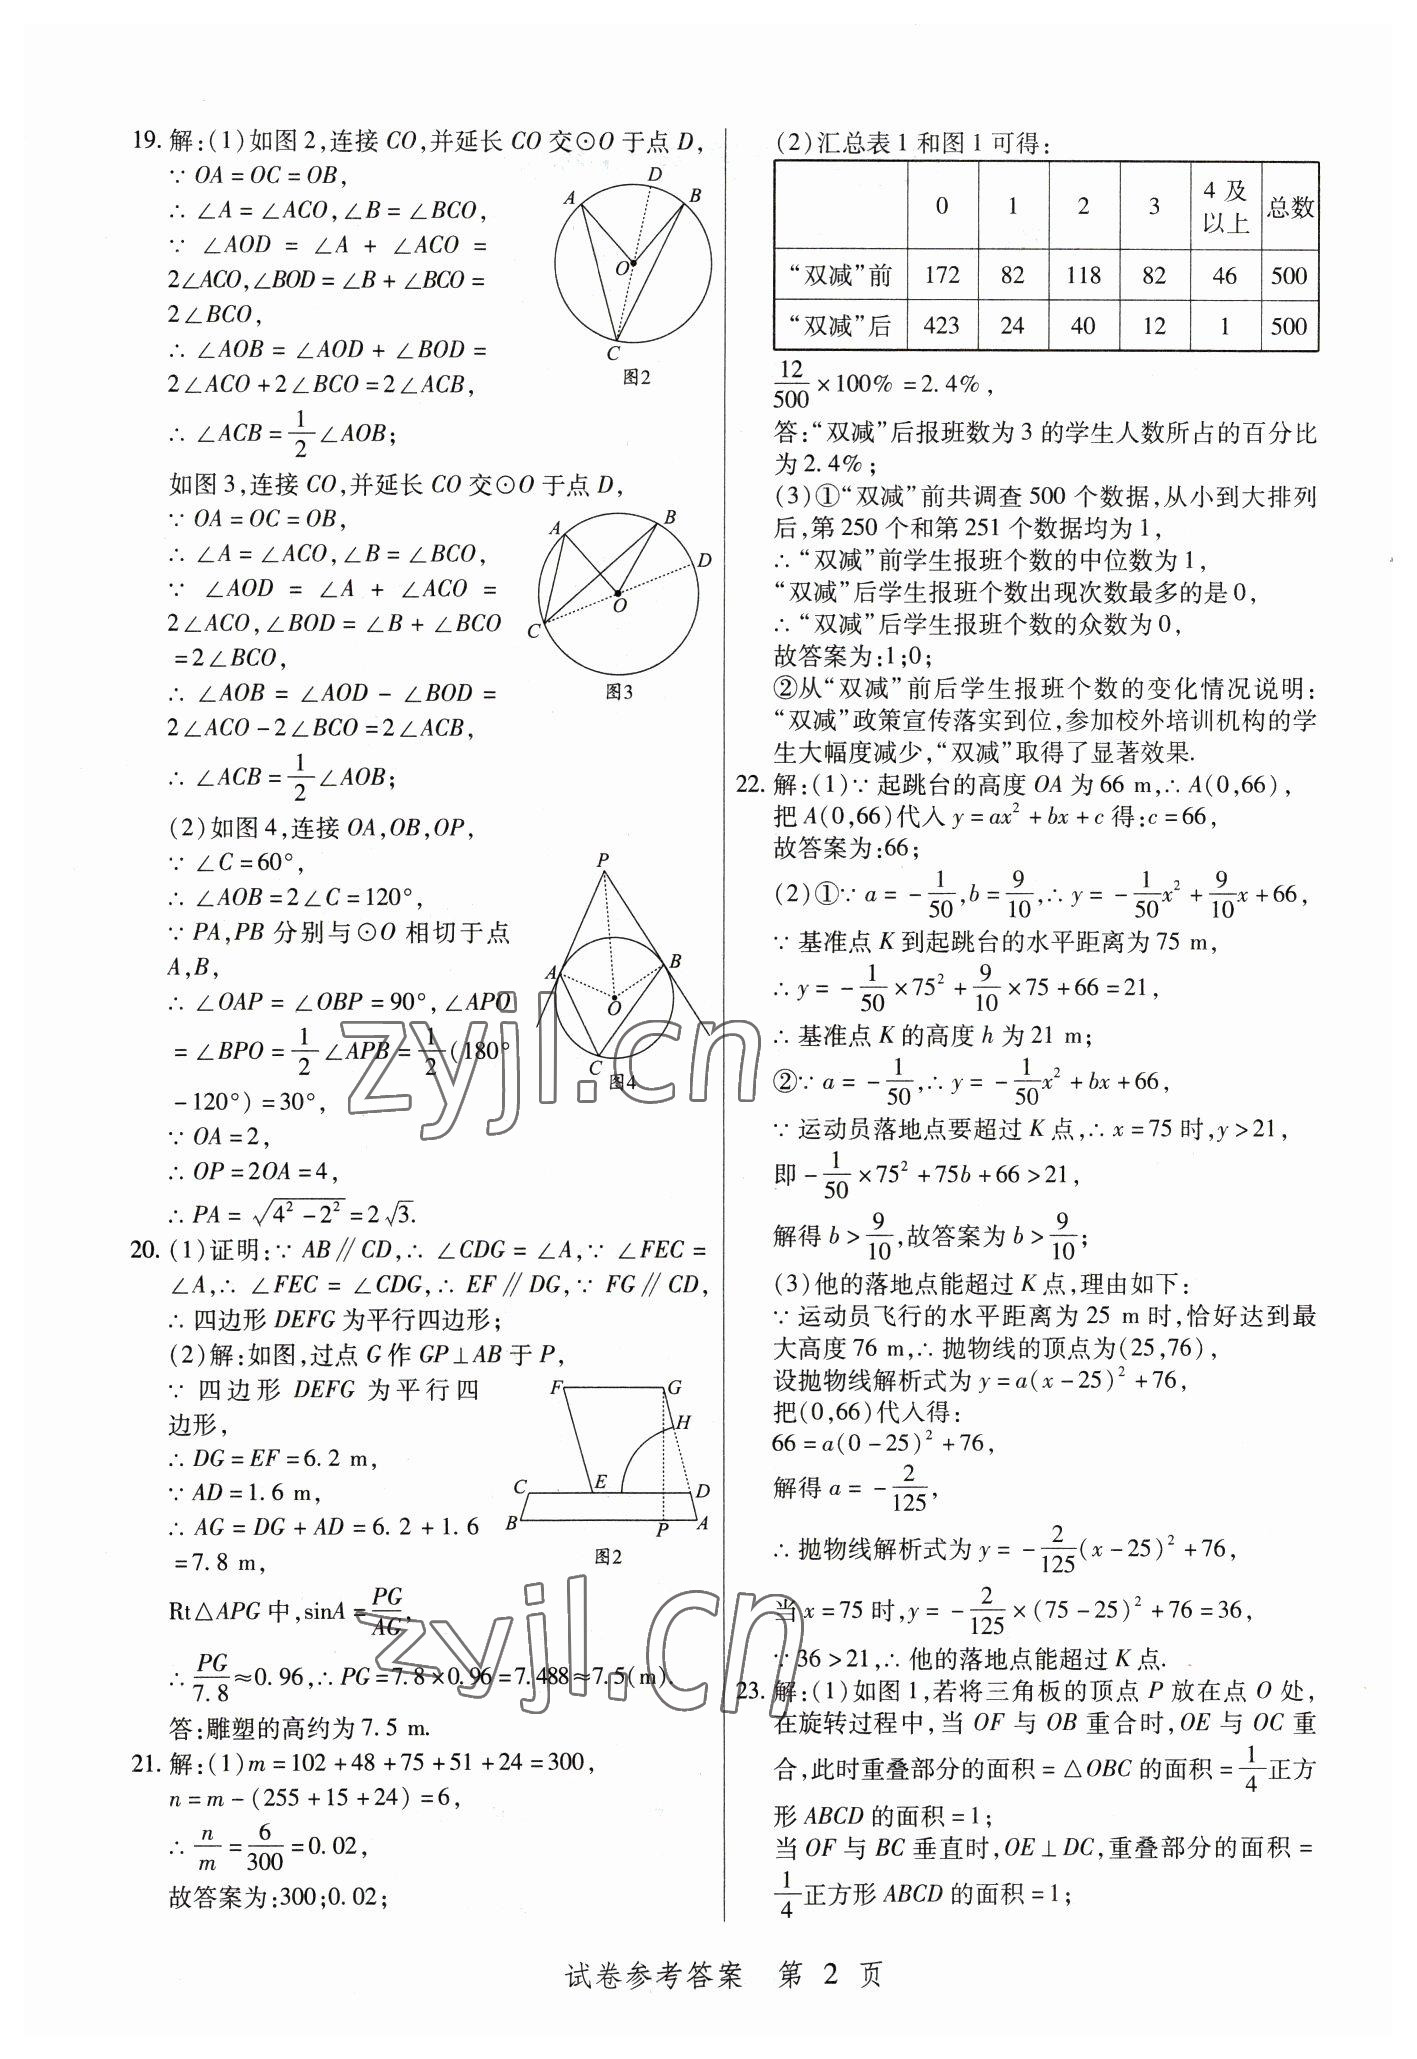 19. 解:(1)如图2,连接CO,并延长CO交⊙O于点D,
∵ OA=OC=OB,
∴ ∠A=∠ACO,∠B=∠BCO,
∵ ∠AOD = ∠A + ∠ACO =
2∠ACO,∠BOD=∠B+∠BCO=
2∠BCO,
∴ ∠AOB=∠AOD+∠BOD=
2∠ACO+2∠BCO=2∠ACB,
∴ ∠ACB=1/2∠AOB;
A
D
B
O
C
图2
如图3,连接CO,并延长CO交⊙O于点D,
∵ OA=OC=OB,
∴ ∠A=∠ACO,∠B=∠BCO,
∵ ∠AOD = ∠A + ∠ACO =
2∠ACO,∠BOD=∠B+∠BCO
=2∠BCO,
∴ ∠AOB=∠AOD-∠BOD=
2∠ACO-2∠BCO=2∠ACB,
∴ ∠ACB=1/2∠AOB;
A
B
D
O
C
图3
(2)如图4,连接OA,OB,OP,
∵ ∠C=60°,
∴ ∠AOB=2∠C=120°,
∵ PA,PB分别与⊙O相切于点
A,B,
∴ ∠OAP=∠OBP=90°,∠APO
=∠BPO=1/2∠APB=1/2(180°
-120°)=30°,
∵ OA=2,
∴ OP=2OA=4,
∴ PA=√(4²-2²)=2√3.
P
A
B
O
C
图4
20. (1)证明:∵ AB∥CD,∴ ∠CDG=∠A,∵ ∠FEC=
∠A,∴ ∠FEC=∠CDG,∴ EF∥DG,∵ FG∥CD,
∴ 四边形DEFG为平行四边形;
(2)解:如图,过点G作GP⊥AB于P,
∵ 四边形DEFG为平行四
边形,
∴ DG=EF=6.2 m,
∵ AD=1.6 m,
∴ AG=DG+AD=6.2+1.6
=7.8 m,
Rt△APG中,sinA=PG/AG,
∴ PG/7.8≈0.96,∴ PG=7.8×0.96=7.488≈7.5(m).
答:雕塑的高约为7.5 m.
F
G
H
C
E
D
B
P
A
图2
21. 解:(1)m=102+48+75+51+24=300,
n=m-(255+15+24)=6,
∴ n/m=6/300=0.02,
故答案为:300;0.02;
(2)汇总表1和图1可得:
0 1 2 3 4及以上 总数
“双减”前 172 82 118 82 46 500
“双减”后 423 24 40 12 1 500
12/500×100%=2.4%,
答:“双减”后报班数为3的学生人数所占的百分比
为2.4%;
(3)①“双减”前共调查500个数据,从小到大排列
后,第250个和第251个数据均为1,
∴ “双减”前学生报班个数的中位数为1,
“双减”后学生报班个数出现次数最多的是0,
∴ “双减”后学生报班个数的众数为0,
故答案为:1;0;
②从“双减”前后学生报班个数的变化情况说明:
“双减”政策宣传落实到位,参加校外培训机构的学
生大幅度减少,“双减”取得了显著效果.
22. 解:(1)∵ 起跳台的高度OA为66 m,∴ A(0,66),
把A(0,66)代入y=ax²+bx+c得:c=66,
故答案为:66;
(2)①∵ a=-1/50,b=9/10,∴ y=-1/50x²+9/10x+66,
∵ 基准点K到起跳台的水平距离为75 m,
∴ y=-1/50×75²+9/10×75+66=21,
∴ 基准点K的高度h为21 m;
②∵ a=-1/50,∴ y=-1/50x²+bx+66,
∵ 运动员落地点要超过K点,∴ x=75时,y>21,
即-1/50×75²+75b+66>21,
解得b>9/10,故答案为b>9/10;
(3)他的落地点能超过K点,理由如下:
∵ 运动员飞行的水平距离为25 m时,恰好达到最
大高度76 m,∴ 抛物线的顶点为(25,76),
设抛物线解析式为y=a(x-25)²+76,
把(0,66)代入得:
66=a(0-25)²+76,
解得a=-2/125,
∴ 抛物线解析式为y=-2/125(x-25)²+76,
当x=75时,y=-2/125×(75-25)²+76=36,
∵ 36>21,∴ 他的落地点能超过K点.
23. 解:(1)如图1,若将三角板的顶点P放在点O处,
在旋转过程中,当OF与OB重合时,OE与OC重
合,此时重叠部分的面积=△OBC的面积=1/4正方
形ABCD的面积=1;
当OF与BC垂直时,OE⊥DC,重叠部分的面积=
1/4正方形ABCD的面积=1;
zyjl.cn
zyjl.cn
试卷参考答案 第2页